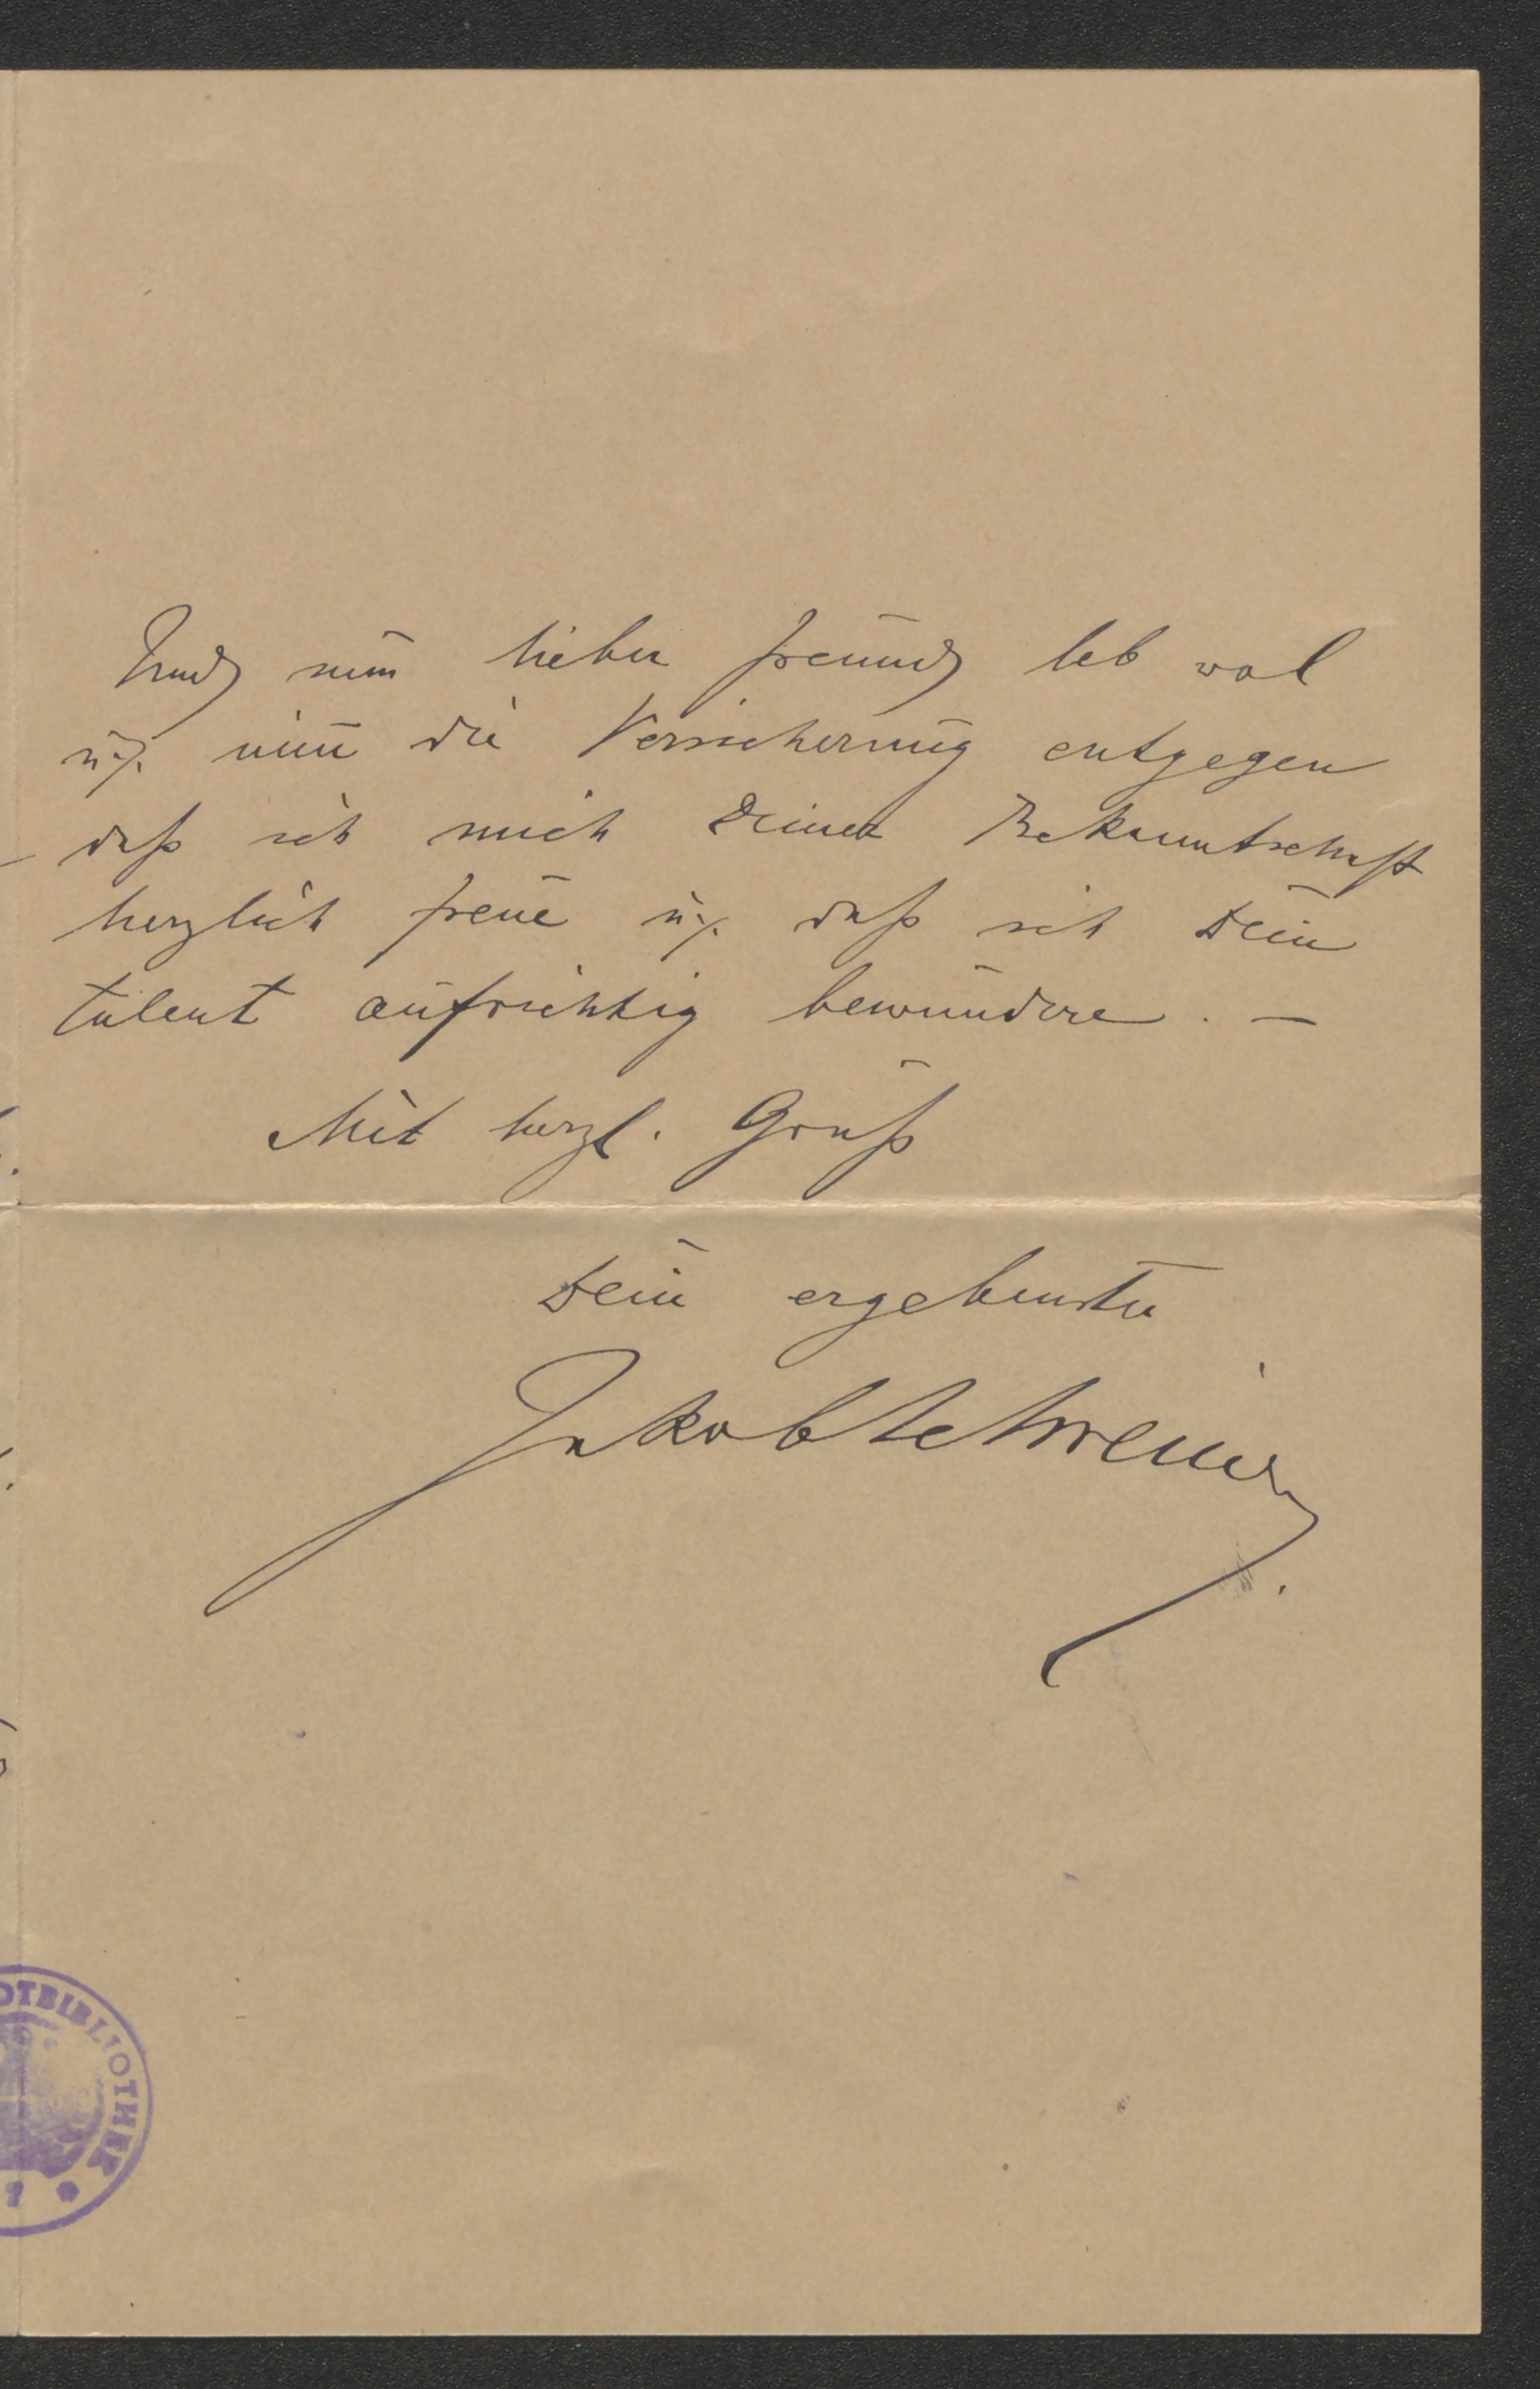 Und nun lieber Freund leb wol
u. nim̅ die Versicherung entgegen
daß ich mich Deiner Bekanntschaft
herzlich freue u. daß ich Dein
talent aufrichtig bewundere. —
Mit herzl. Gruß
Dein ergebenster
Jakob
OTBIBLIOTHEK